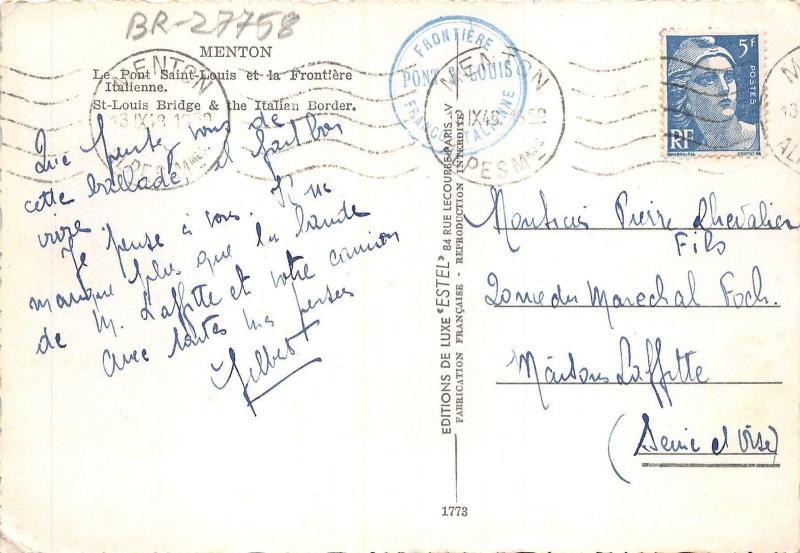 BR-27758
MENTON
Le Pont Saint-Louis et la Frontière
Italienne.
St-Louis Bridge & the Italian Border.
Que pensez vous de
cette ballade, il fait bon
vivre
Je pense à vous. Il ne
manque plus que la bande
de M. Laffitte et votre camion
avec toutes mes pensées
Gilbert
EDITIONS DE LUXE "ESTEL" 84 RUE LECOURBE-PARIS-XV
FABRICATION FRANÇAISE - REPRODUCTION INTERDITE
1773
FRONTIÈRE
PONT St LOUIS
FRANCO ITALIENNE
MENTON
13 IX 48
ALPES Mmes
5F
POSTES
RF
Monsieur Pierre Chevalier
Fils
du Marechal Foch.
Maisons Laffitte
(Seine et Oise)